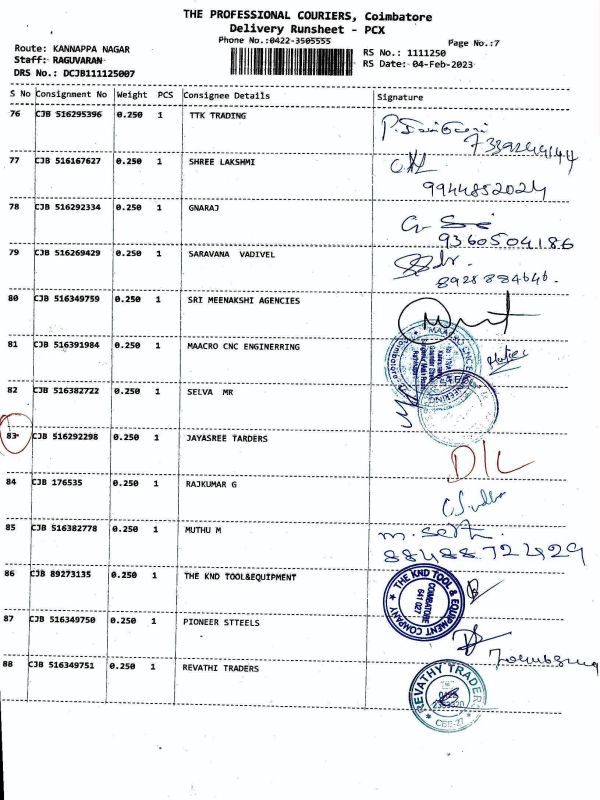 THE PROFESSIONAL COURIERS, Coimbatore
Delivery Runsheet - PCX
Phone No.:0422-3505555
Page No.:7
Route: KANNAPPA NAGAR
RS No.: 1111250
Staff: RAGUVARAN
RS Date: 04-Feb-2023
DRS No.: DCJB111125007
S No Consignment No Weight PCS Consignee Details Signature
76 CJB 516295396 0.250 1 TTK TRADING
77 CJB 516167627 0.250 1 SHREE LAKSHMI
9944852024
78 CJB 516292334 0.250 1 GNARAJ
9360504186
79 CJB 516269429 0.250 1 SARAVANA VADIVEL
80 CJB 516349759 0.250 1 SRI MEENAKSHI AGENCIES
81 CJB 516391984 0.250 1 MAACRO CNC ENGINERRING
82 CJB 516382722 0.250 1 SELVA MR
83 CJB 516292298 0.250 1 JAYASREE TARDERS
D/L
84 CJB 176535 0.250 1 RAJKUMAR G
85 CJB 516382778 0.250 1 MUTHU M
86 CJB 89273135 0.250 1 THE KND TOOL&EQUIPMENT
THE KND TOOL & EQUIPMENT COMPANY
COIMBATORE
641 027
87 CJB 516349750 0.250 1 PIONEER STTEELS
88 CJB 516349751 0.250 1 REVATHI TRADERS
REVATHY TRADERS
CBE-27